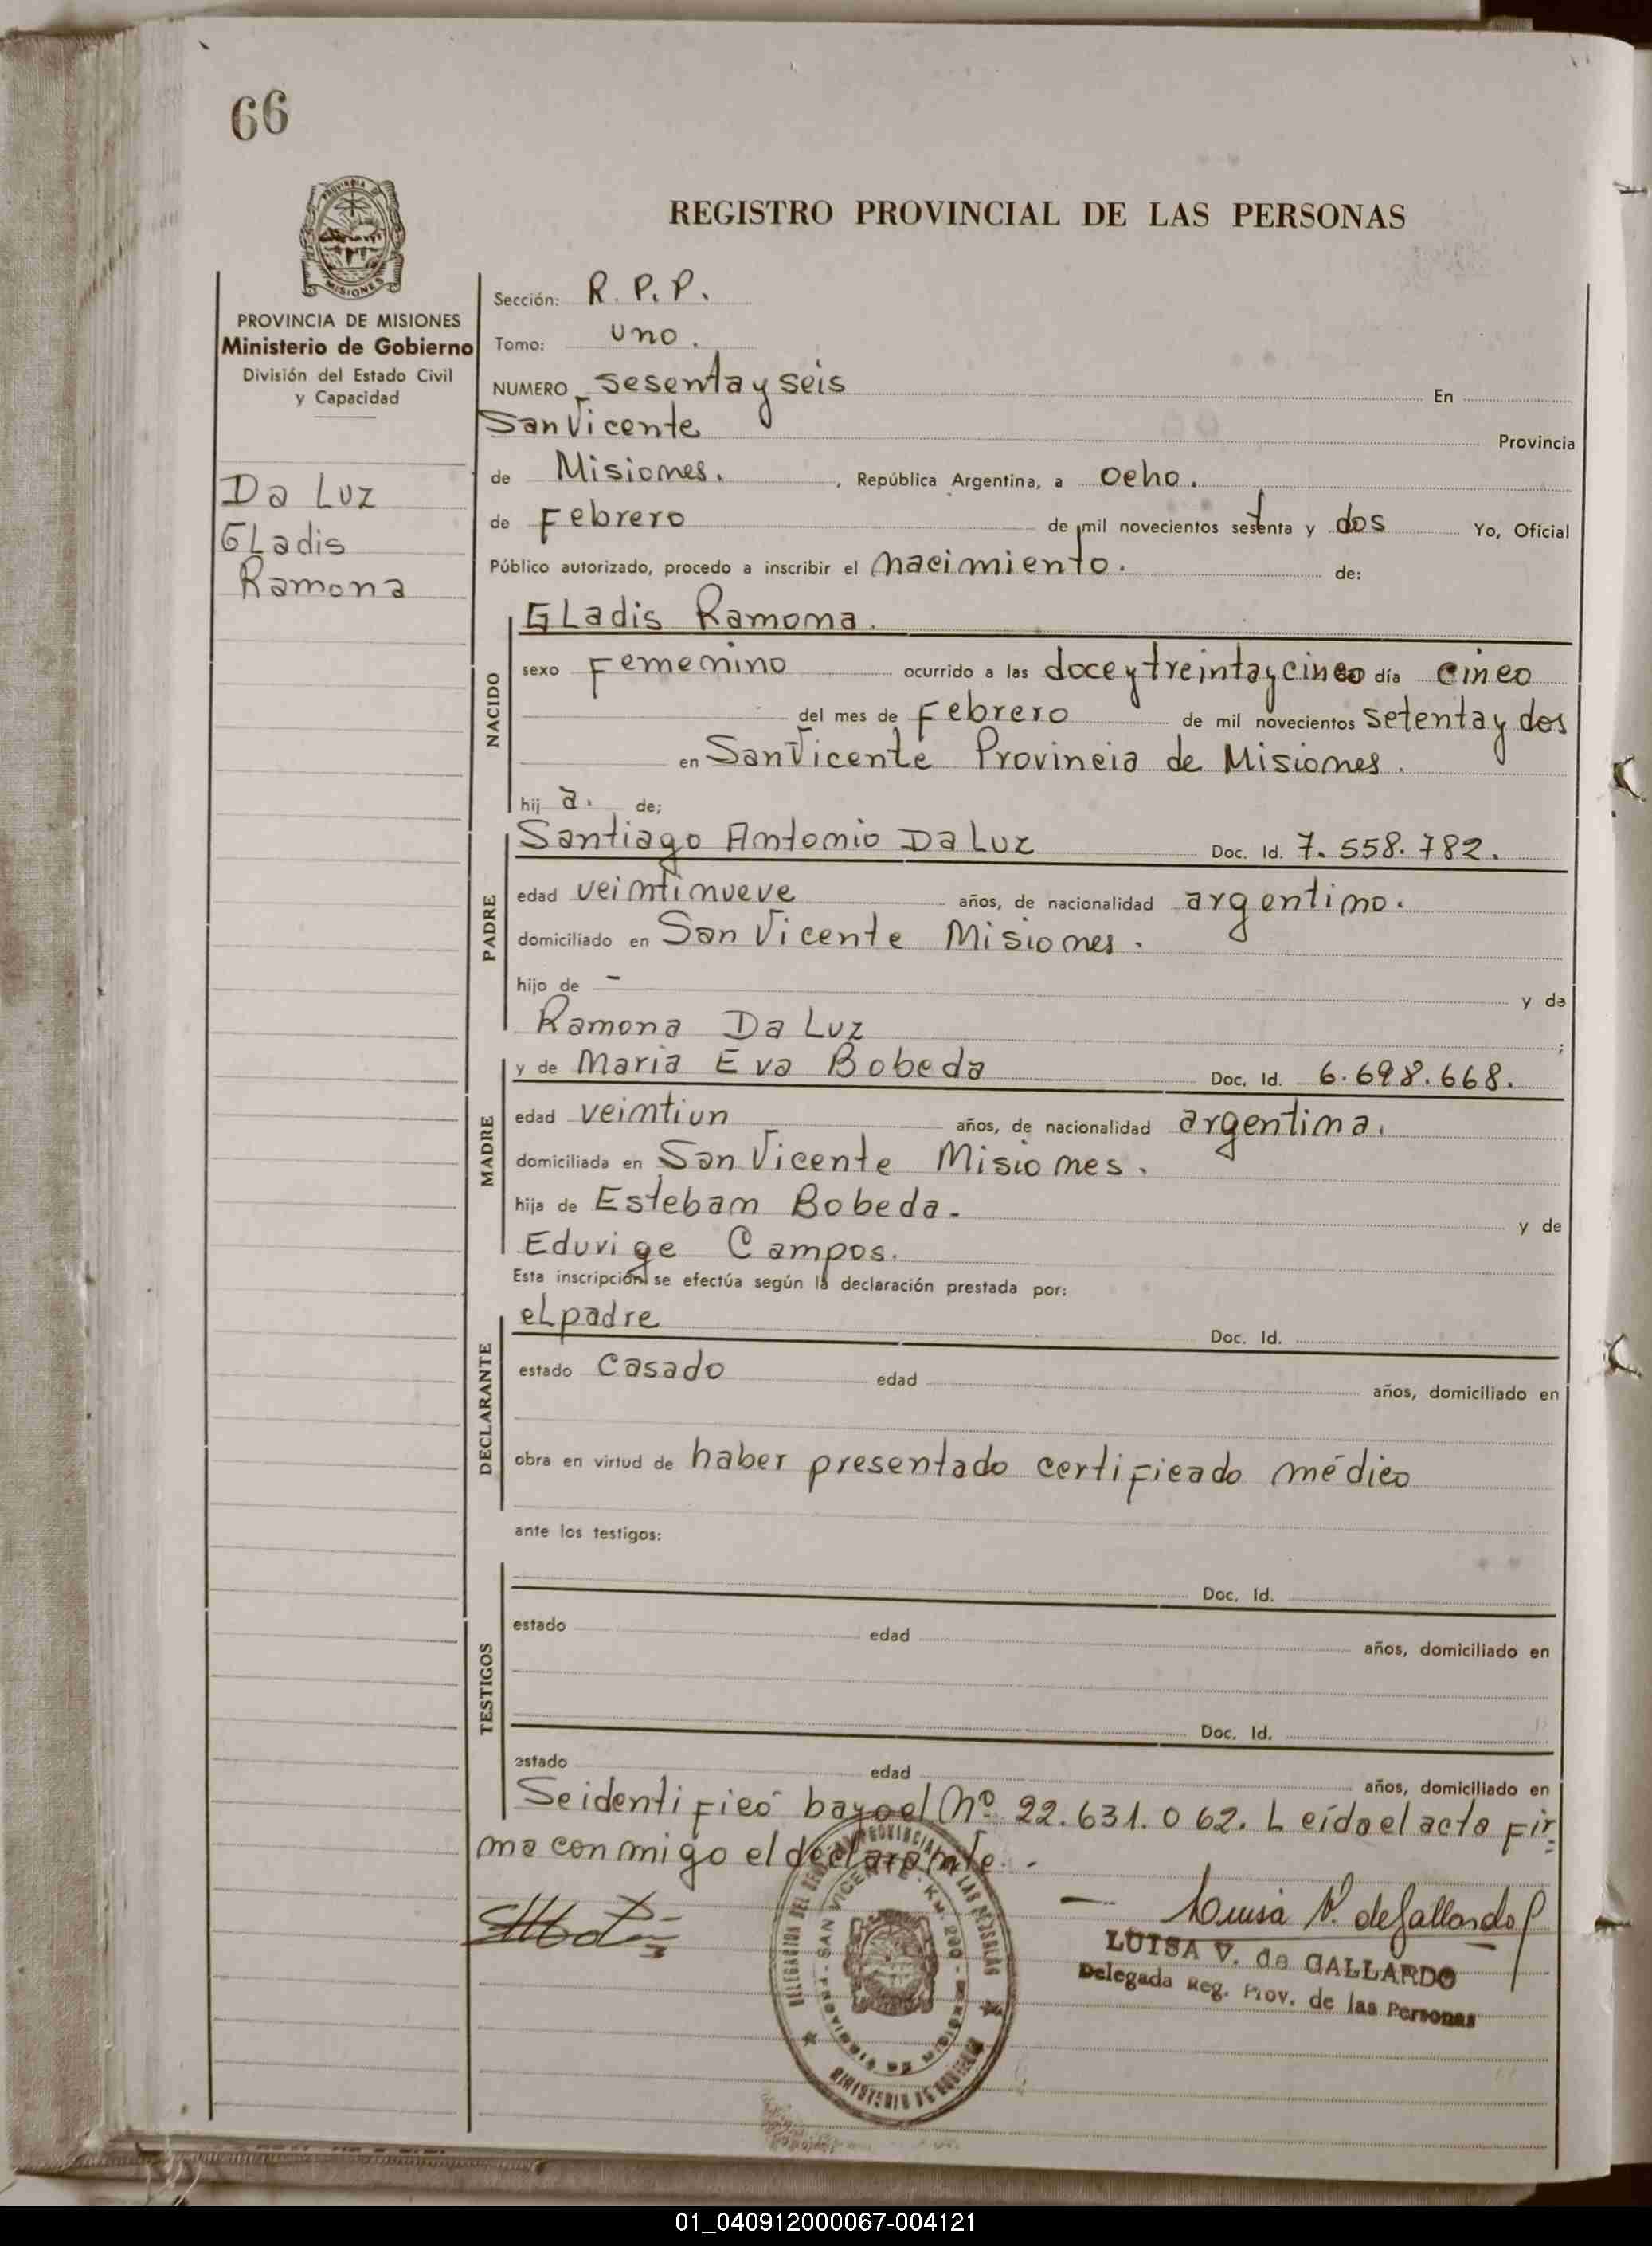 66
PROVINCIA DE
MISIONES
REGISTRO PROVINCIAL DE LAS PERSONAS
PROVINCIA DE MISIONES
Ministerio de Gobierno
División del Estado Civil
y Capacidad
Da Luz
GLadis
Ramona
Sección: R. P. P.
Tomo: uno.
NUMERO sesenta y seis En
San Vicente Provincia
de Misiones. , República Argentina, a ocho.
de Febrero de mil novecientos setenta y dos Yo, Oficial
Público autorizado, procedo a inscribir el nacimiento. de:
NACIDO
GLadis Ramona.
sexo Femenino ocurrido a las doce y treinta y cinco día cinco
del mes de Febrero de mil novecientos setenta y dos
en San Vicente Provincia de Misiones.
hij a. de;
PADRE
Santiago Antonio Da Luz Doc. Id. 7.558.782.
edad veintinueve años, de nacionalidad argentino.
domiciliado en San Vicente Misiones.
hijo de - y de
Ramona Da Luz ;
MADRE
y de Maria Eva Bobeda Doc. Id. 6.698.668.
edad veintiun años, de nacionalidad argentina.
domiciliada en San Vicente Misiones.
hija de Esteban Bobeda. y de
Eduvige Campos.
Esta inscripción se efectúa según la declaración prestada por:
DECLARANTE
eL padre Doc. Id.
estado Casado edad años, domiciliado en
obra en virtud de haber presentado certificado médico
ante los testigos:
TESTIGOS
Doc. Id.
estado edad años, domiciliado en
Doc. Id.
estado edad años, domiciliado en
Se identificó bayo el Nº 22.631.062. Leída el acta fir=
ma conmigo el declarante. -
DELEGACION DEL REGISTRO PROVINCIAL DE LAS PERSONAS
SAN VICENTE - KM. 260 -
MINISTERIO DE GOBIERNO
Luisa V. de Gallardo
LUISA V. de GALLARDO
Delegada Reg. Prov. de las Personas
01_040912000067-004121